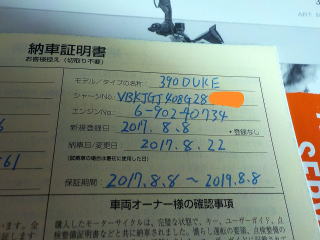 納車証明書
お客様控え(切取り不要)
モデル/タイプの名称: 390 DUKE
シャーシNo. VBKJGJ408G28
エンジンNo. 6-902-40734
新規登録日 2017. 8. 8 *登録なし
納車日/変更日 2017. 8. 22
(試乗車の場合は最初に使用した日)
保証期間 2017.8.8 ~ 2019.8.8
車両オーナー様の確認事項
購入したモーターサイクルは、完璧な状態で、キー、ユーザーガイド、点
検整備証明書などと共に納車されました。慣らし運転の要領、点検整備の
61